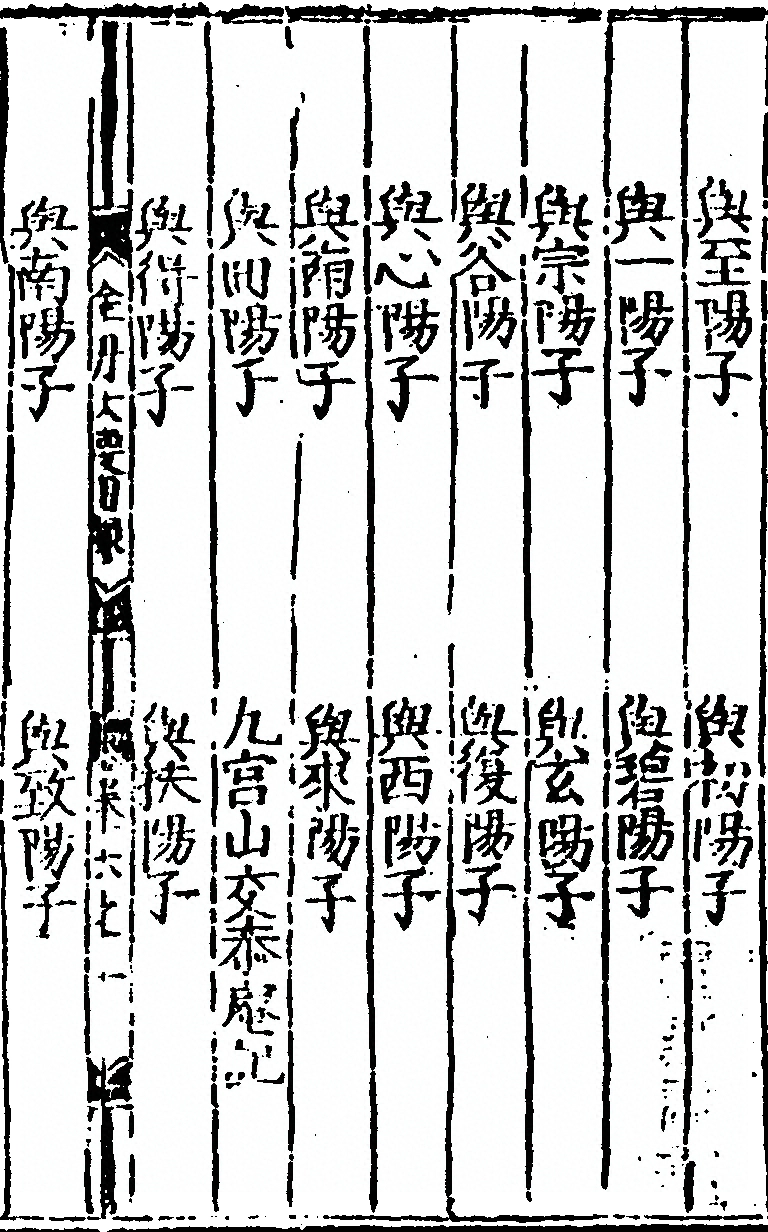 與至陽子
與初陽子
與一陽子
與碧陽子
與宗陽子
與玄陽子
與谷陽子
與復陽子
與心陽子
與西陽子
與陽子
與來陽子
與回陽子
九宮山交泰庵記
與得陽子
與扶陽子
金丹大要目录
與南陽子
與致陽子